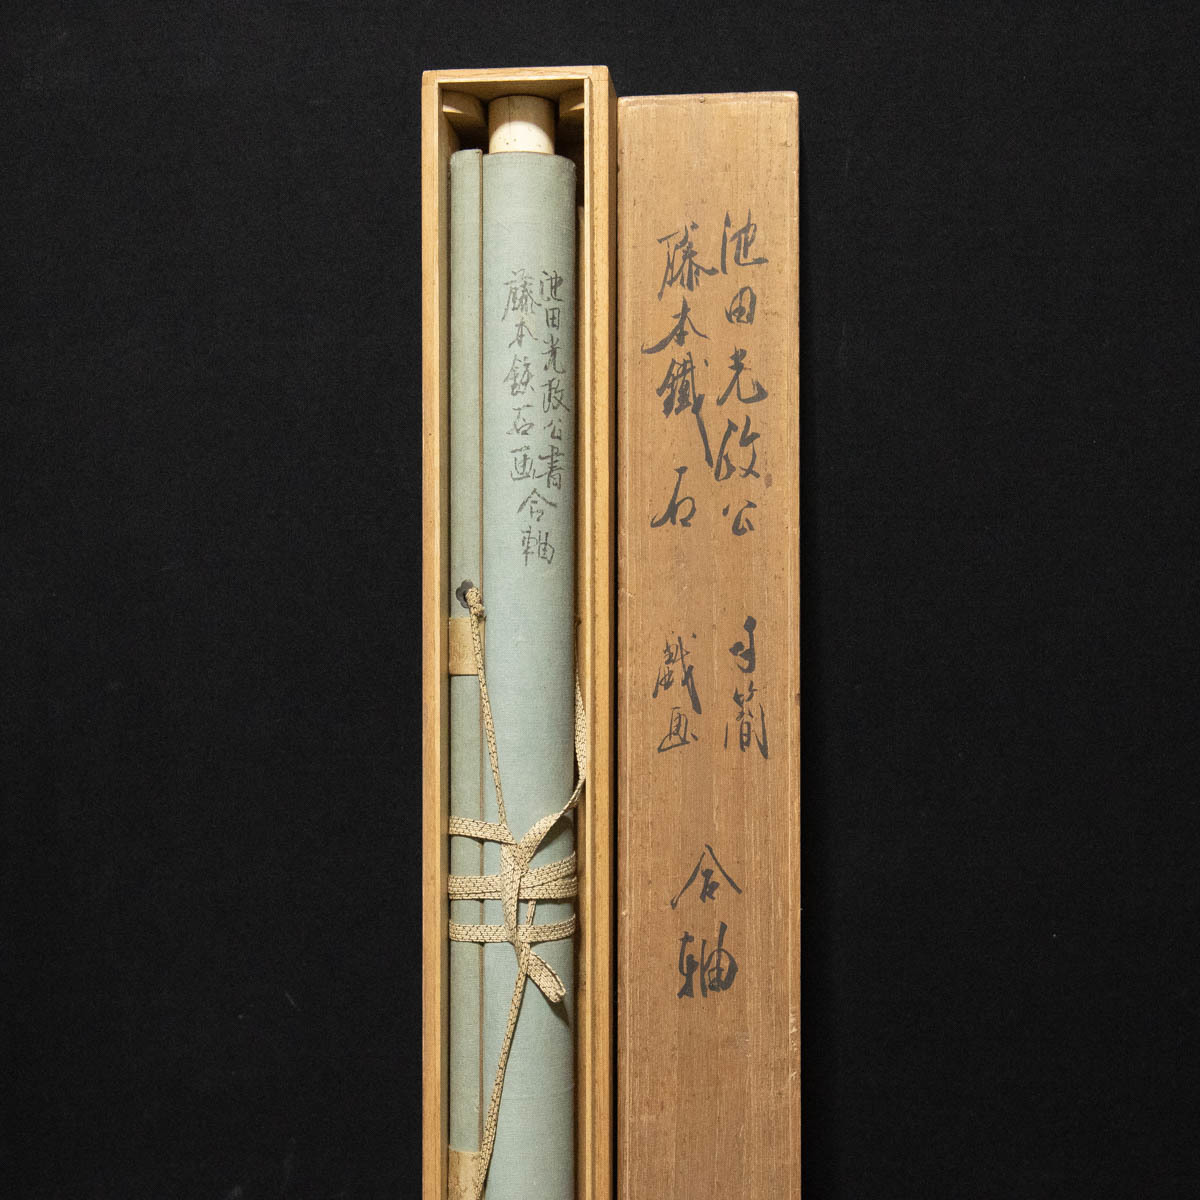 池田光政公 手簡
藤本鐵石 戯画
合軸
池田光政公書
藤本鉄石画
合軸